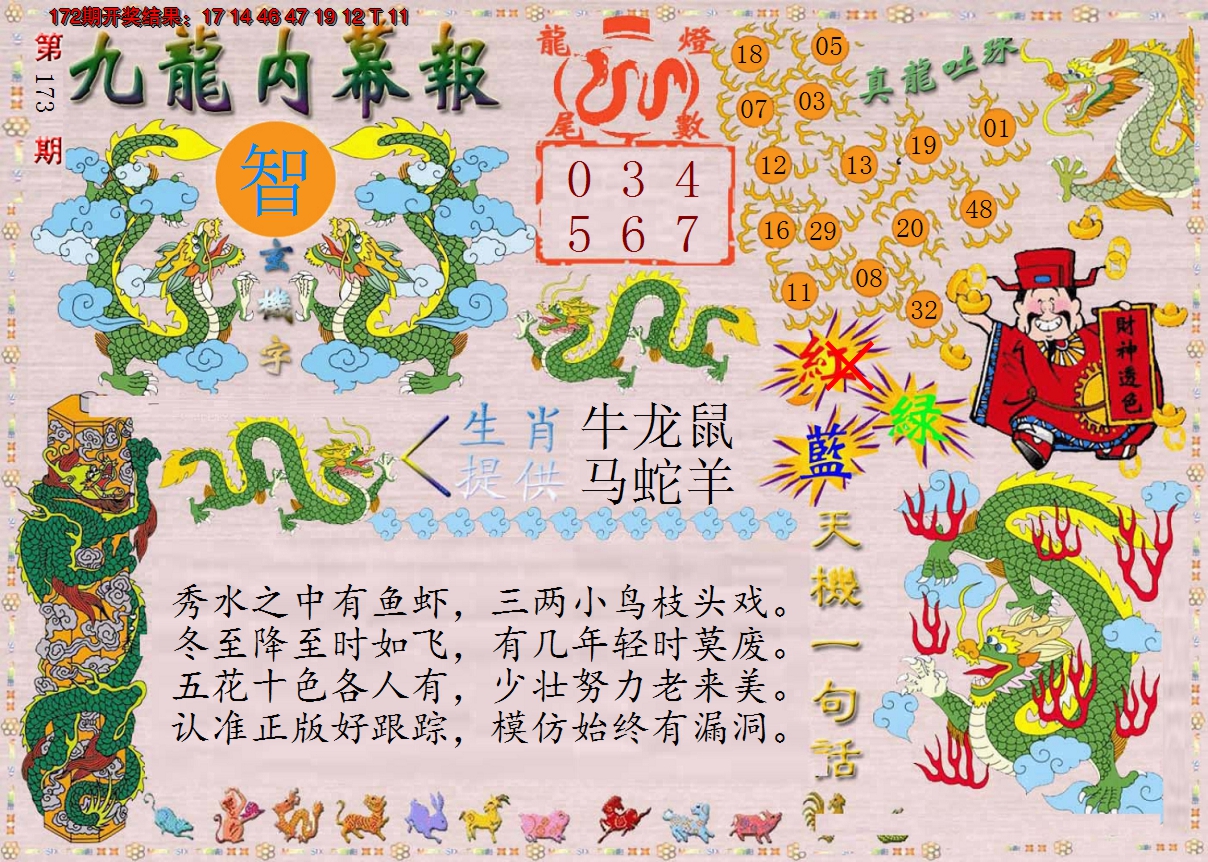 172期开奖结果：17 14 46 47 19 12 T 11
第173期
九龍内幕報
智
玄機字
龍燈
尾數
0 3 4
5 6 7
真龍吐珠
18 05
07 03
12 13 19 01
16 29 20 48
11 08 32
紅
綠
藍
財神透色
生肖 牛龙鼠
提供 马蛇羊
天機一句话
秀水之中有鱼虾，三两小鸟枝头戏。
冬至降至时如飞，有几年轻时莫废。
五花十色各人有，少壮努力老来美。
认准正版好跟踪，模仿始终有漏洞。